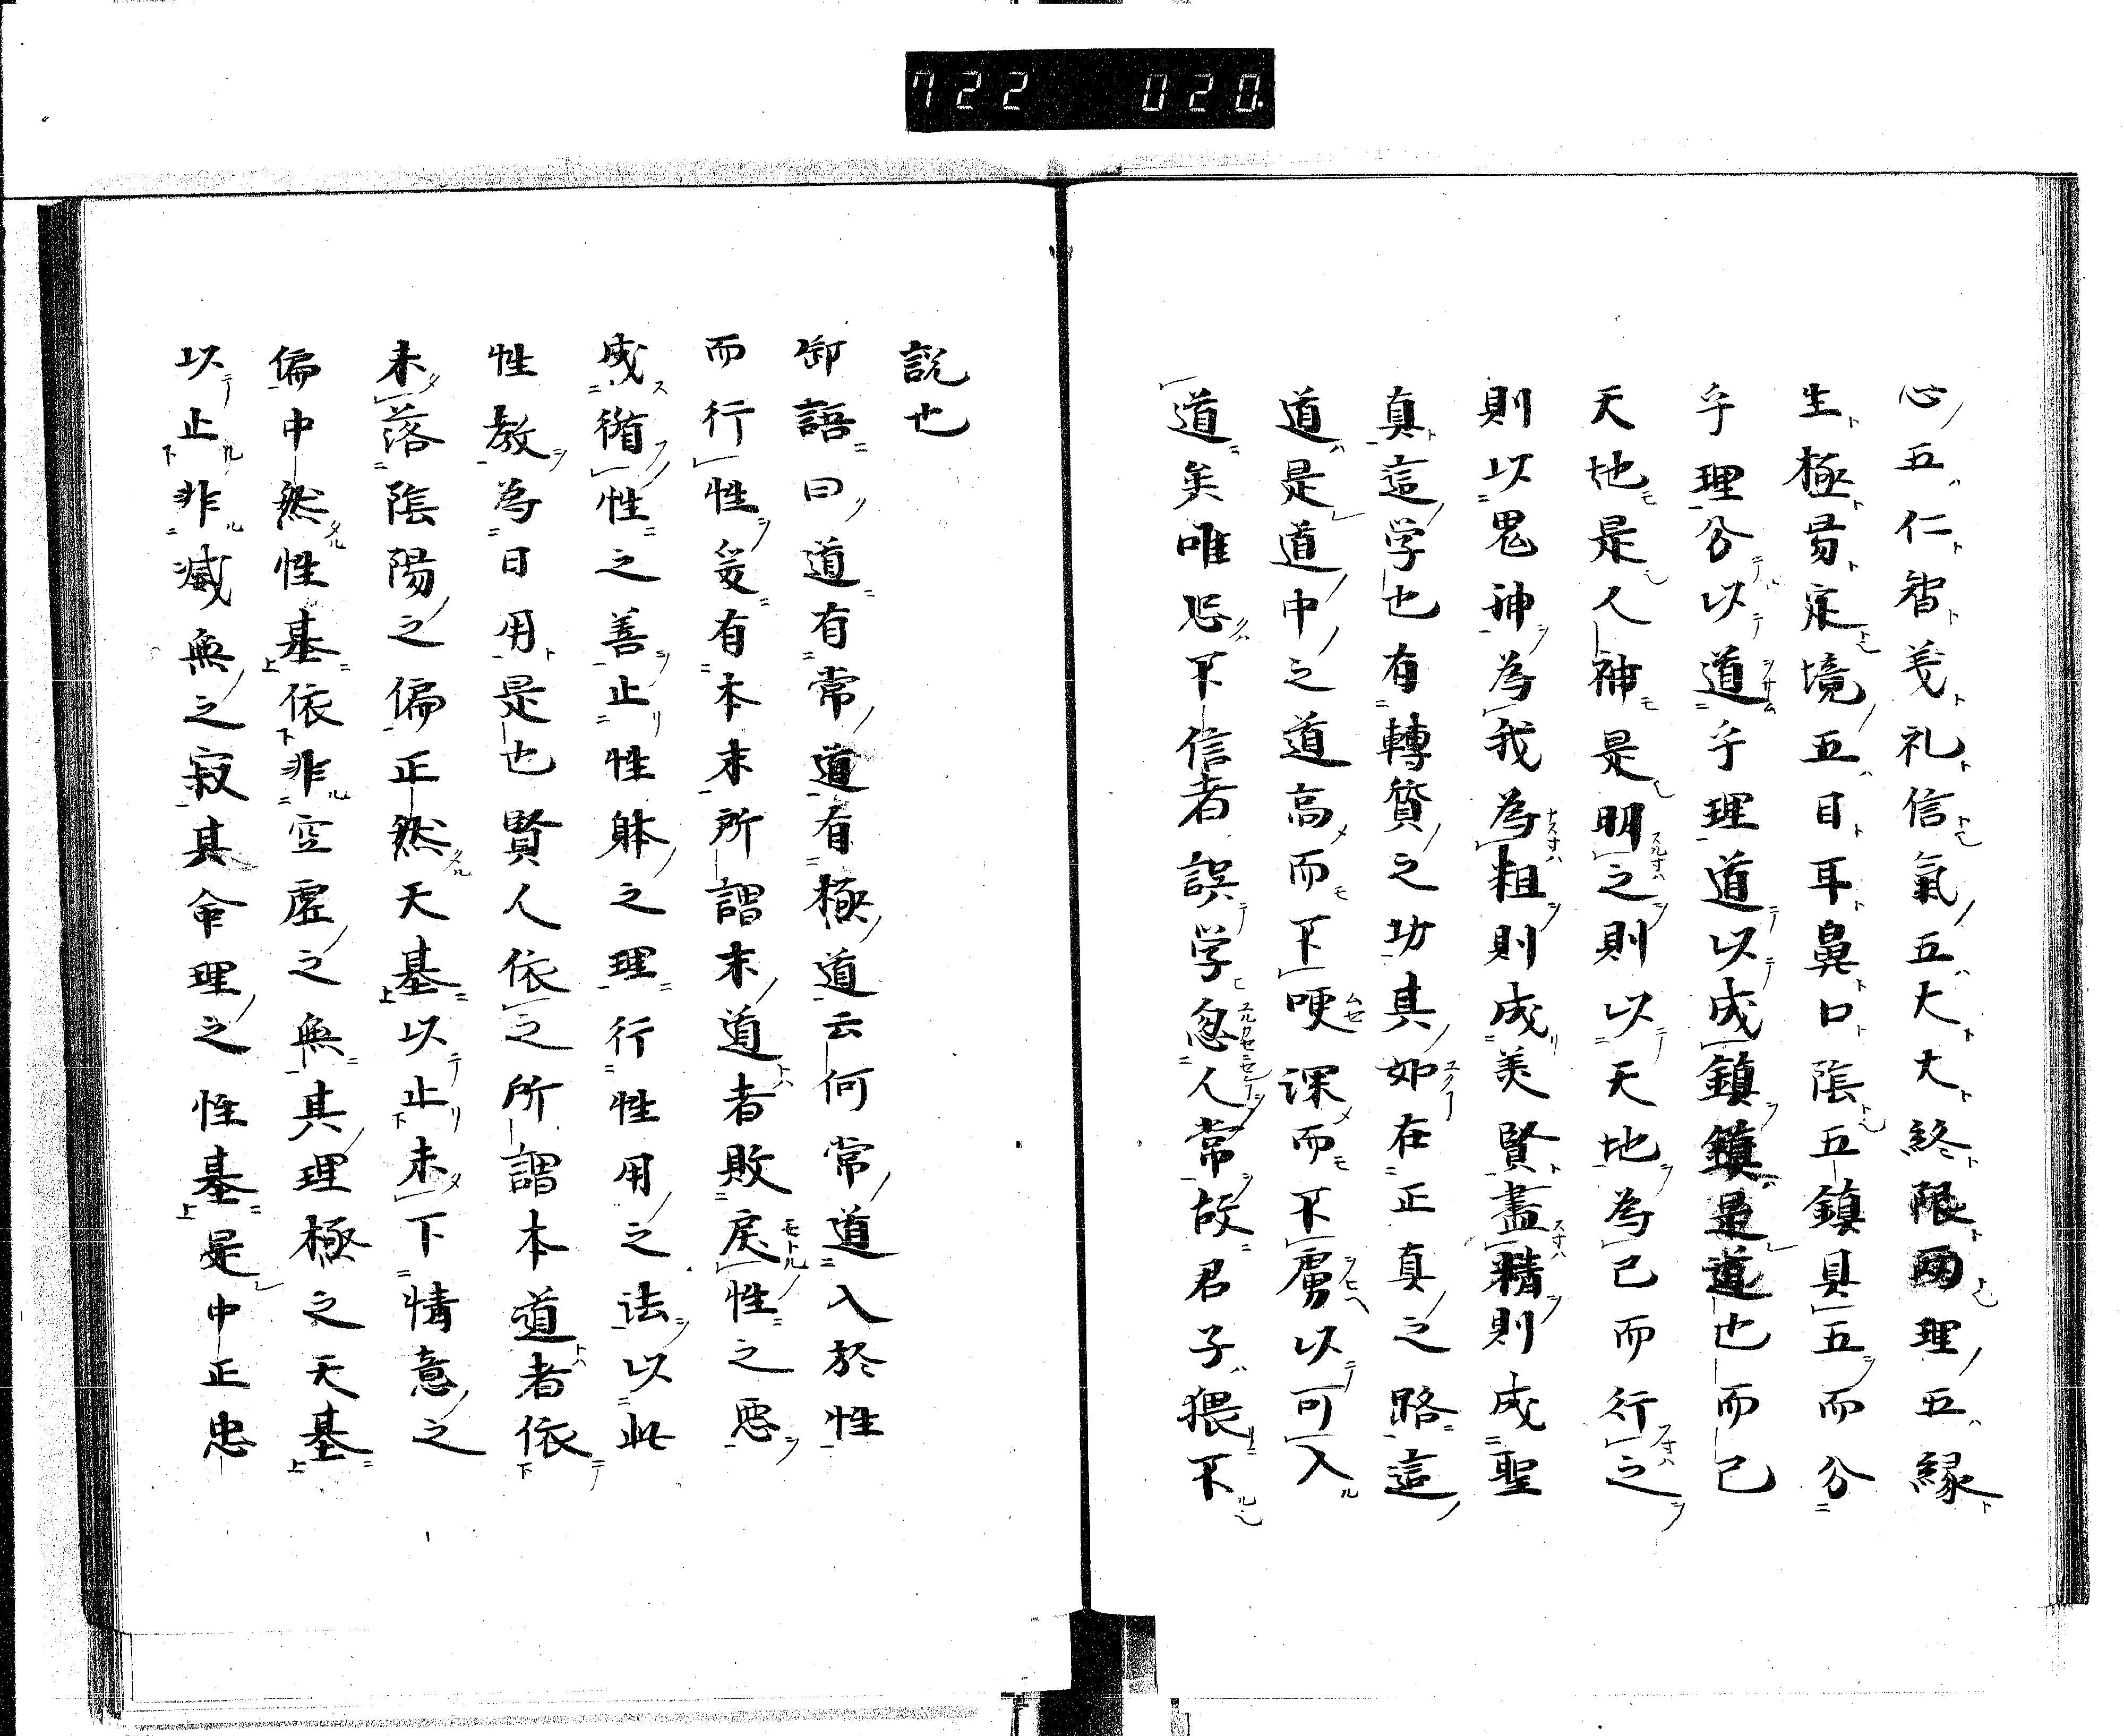 722 020.
心五仁智義礼信氣五大大終限兩理五縁
生極昜定境五目耳鼻口陰五鎮具五而分
乎理分以道乎理道以成鎮鎮是道也而已
天地是人神是明之則以天地為己而行之
則以鬼神為我為粗則成美賢盡精則成聖
真這学也有轉質之功其如在正真之路這
道是道中之道高而不哽深而不虜以可入
道矣唯恐不信者誤学忽人常故君子猥不
説也
御語曰道有常道有極道云何常道入於性
而行性爰有本末所謂末道者敗戻性之悪
成脩性之善止性躰之理行性用之法以此
性教為日用是也賢人依之所謂本道者依
未落陰陽之偏正然天基以止未下情意之
偏中然性基依非空虚之無其理極之天基
以止非滅無之寂其命理之性基是中正忠